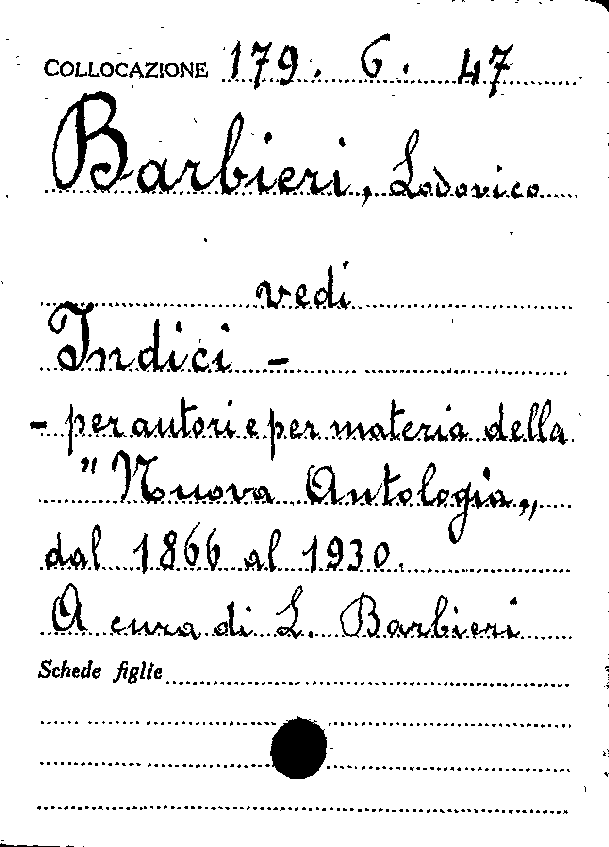 COLLOCAZIONE 179. 6. 47
Barbieri, Lodovico
vedi
Indici -
- per autori e per materia della
"Nuova Antologia„
dal 1866 al 1930.
A cura di L. Barbieri
Schede figlie